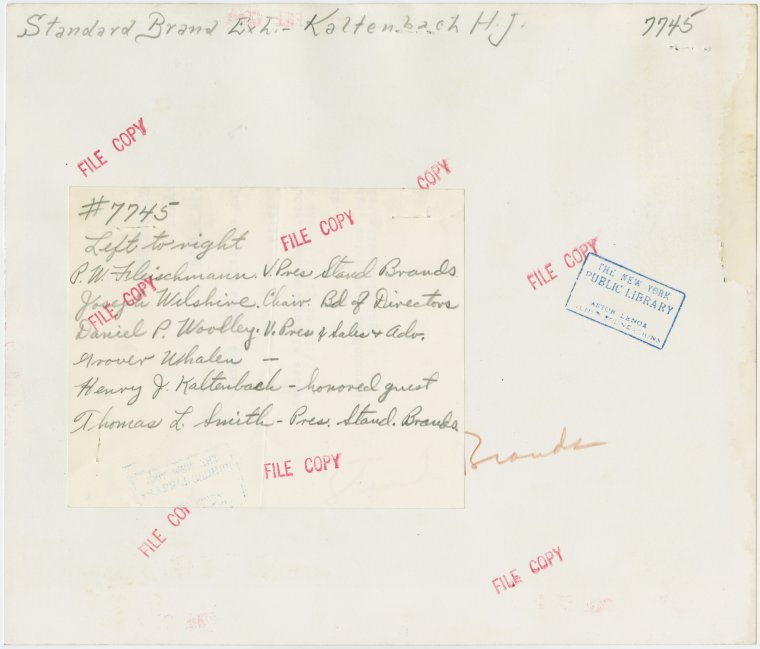 Standard Brand Exh. - Kaltenbach H.J. 7745
FILE COPY
COPY
#7745
Left to right
FILE COPY
P.W. Fleischmann. V. Pres Stand Brands
Joseph Wilshire. Chair. Bd of Directors
FILE COPY
Daniel P. Woolley. V. Pres of Sales & Adv.
Grover Whalen -
Henry J. Kaltenbach - honored guest
Thomas L. Smith - Pres. Stand. Brands
FILE COPY
THE NEW YORK
PUBLIC LIBRARY
ASTOR LENOX
Brands
FILE COPY
FILE COPY
FILE COPY